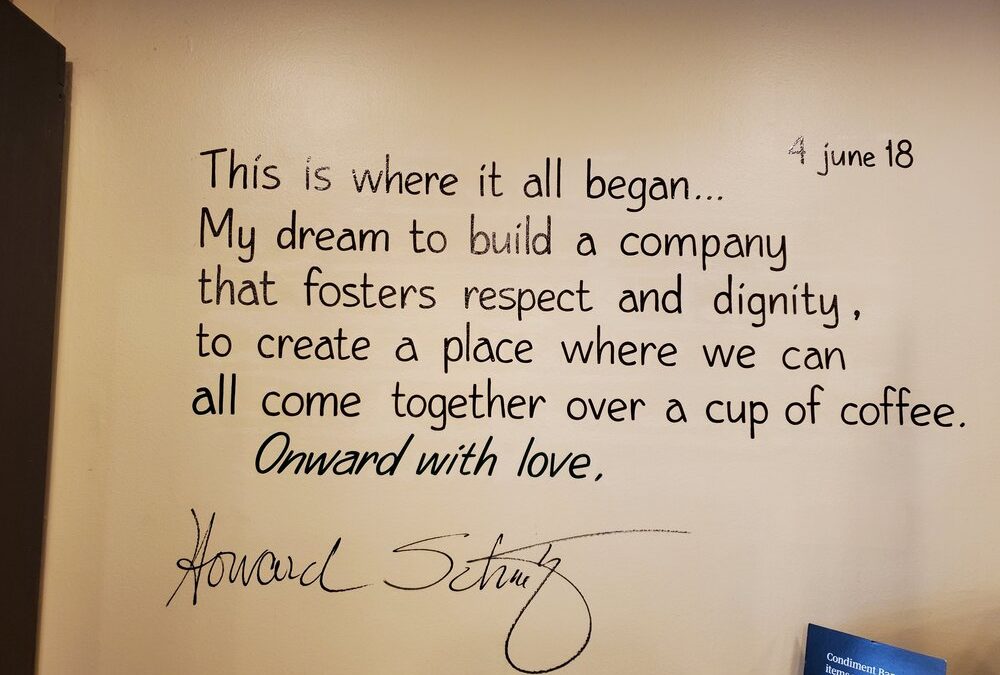 4 june 18
This is where it all began...
My dream to build a company
that fosters respect and dignity,
to create a place where we can
all come together over a cup of coffee.
Onward with love,
Howard Schultz
Condiment
items